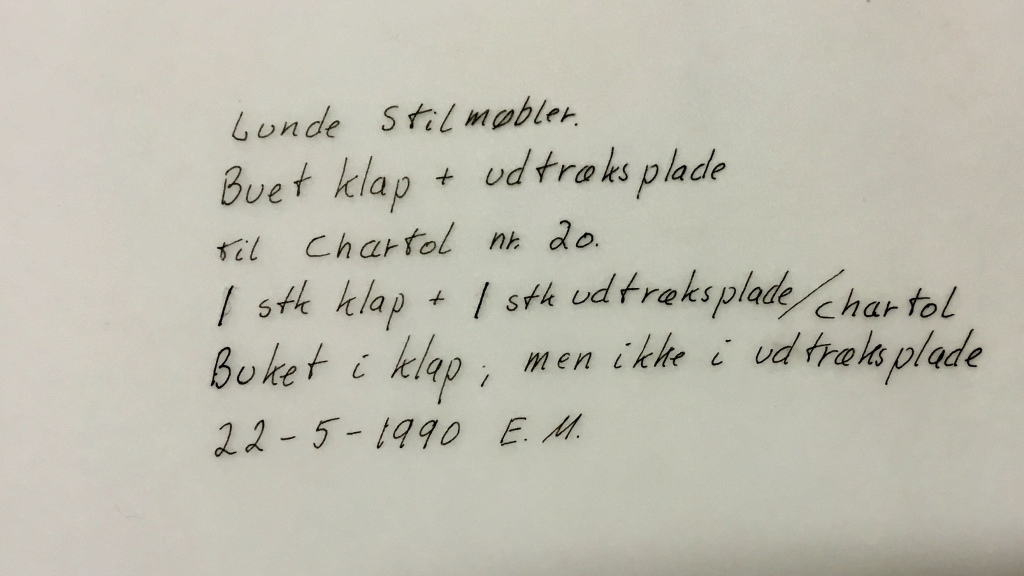 Lunde Stilmøbler.
Buet klap + udtræksplade
til Chartol nr. 20.
1 stk klap + 1 stk udtræksplade/chartol
Buket i klap, men ikke i udtræksplade
22-5-1990 E.M.